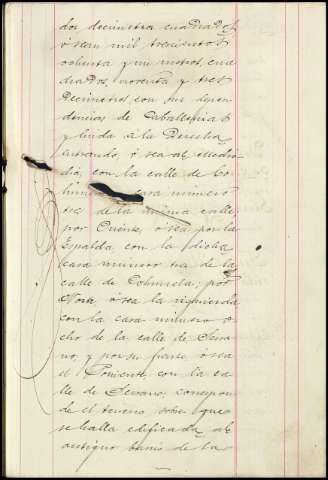 dos decimetros cuadrados,
ó sean mil trescientos
ochenta y un metros, cua
drados, noventa y tres
decimetros, con sus depen
dencias de Caballerizas
y linda á la Derecha
entrando, ó sea al Medio
dia, con la calle de Co
casa número
tres de la misma calle,
por Oriente, ó sea por la
Espalda con la dicha
casa número tres de la
calle de Columela; por
Norte ó sea la izquierda
con la casa número o
cho de la calle de Serra
no, y por su frente, ó sea
el Poniente, con la ca
lle de Serrano, correspon
de el terreno sobre que
se halla edificada, al
antiguo barrio de la